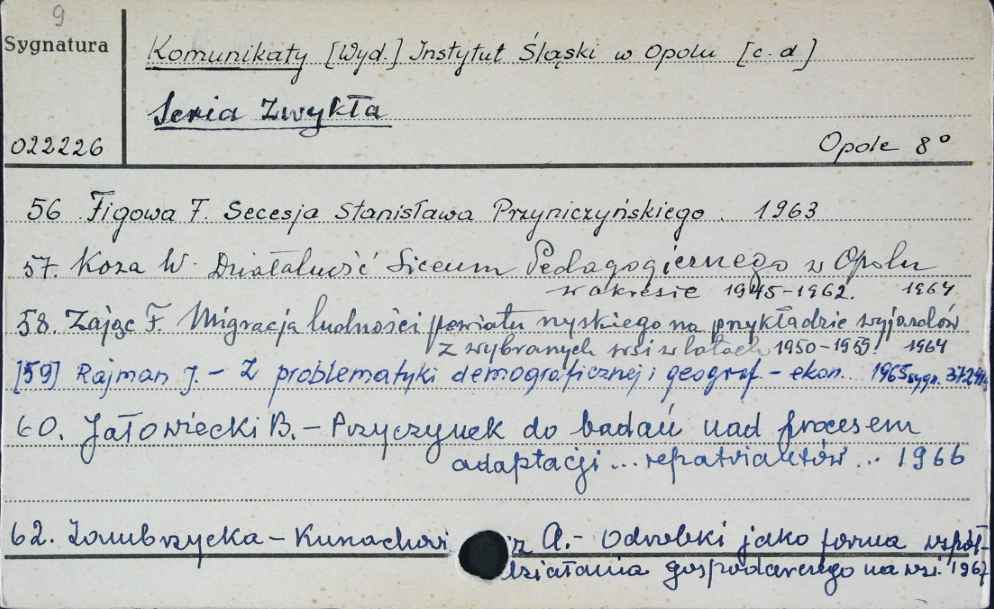 9
Sygnatura
Komunikaty [Wyd.] Instytut Śląski w Opolu [c. d]
Seria Zwykła
022226
Opole 8°
56 Figowa F. Secesja Stanisława Przyniczyńskiego. 1963
57. Koza W. Działalność Liceum Pedagogicznego w Opolu
w okresie 1945-1962. 1964
58. Zając F. Migracja ludności powiatu nyskiego na przykładzie wyjazdów
z wybranych wsi w latach 1950-1959. 1964
[59] Rajman J. - Z problematyki demograficznej i geograf - ekon. 1965 sygn.
60. Jałowiecki B. - Przyczynek do badań nad procesem
adaptacji ... repatriantów ... 1966
62. Zambrzycka - Kunachowicz A. - Odrobki jako forma współ-
działania gospodarczego na wsi. 1967